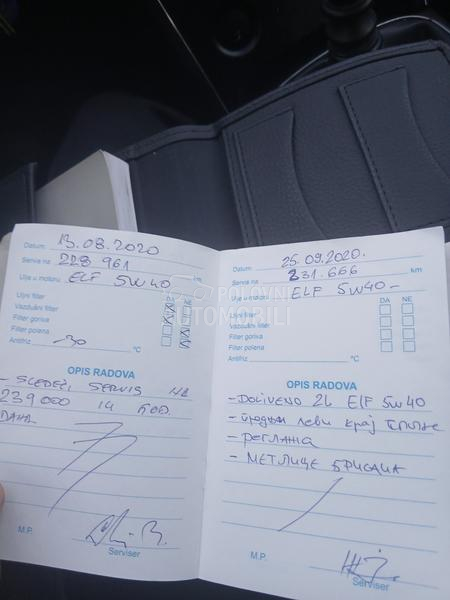 Datum 13.08.2020
Servis na 228 961 km
Ulje u motoru ELF 5W40
DA NE
Uljni filter
Vazdušni filter
Filter goriva
Filter polena
Antifriz -30 °C
OPIS RADOVA
- SLEDEĆI SERVIS NA
239000 ILI GOD.
DANA
M.P.
Serviser
Datum 25.09.2020.
Servis na 231.666 km
Ulje u motoru ELF 5W40 -
DA NE
Uljni filter
Vazdušni filter
Filter goriva
Filter polena
Antifriz °C
OPIS RADOVA
- DOLIVENO 2L ELF 5W40
- леви крај
- реглажа
- МЕТЛИЦЕ БРИСАЧА
M.P.
Serviser
POLOVNI
AUTOMOBILI